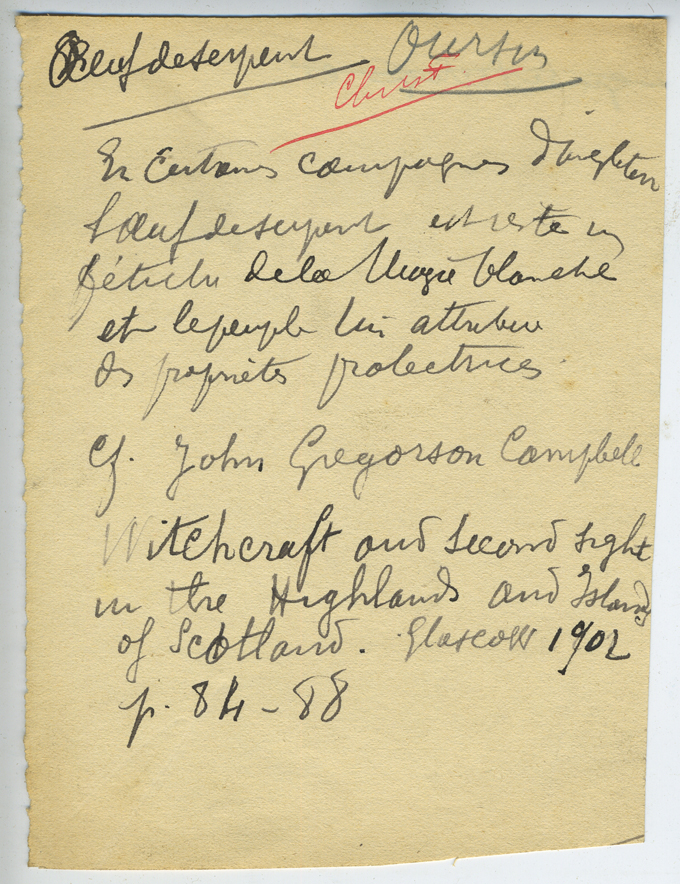 Oeuf de serpent Oursin
Christ
En Certaines campagnes d'Angleterre
L'œuf de serpent est resté un
fétiche de la Magie blanche
et le peuple lui attribue
des propriétés protectrices.
Cf. John Gregorson Campbell
Witchcraft and Second Sight
in the Highlands and Islands
of Scotland. Glascow 1902
p. 84-88